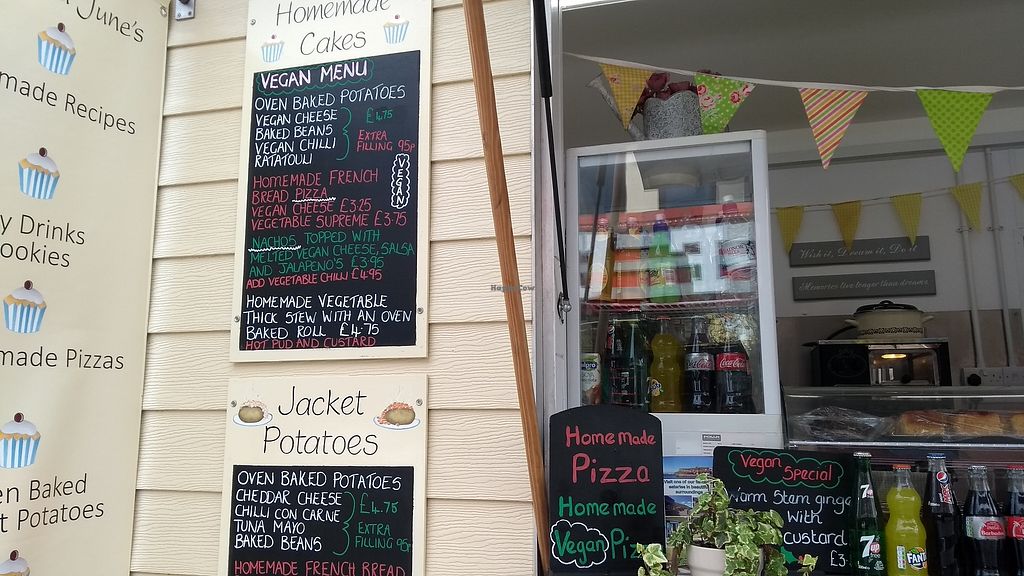 June's
made Recipes
Drinks
ookies
made Pizzas
Baked
Potatoes
Homemade
Cakes
VEGAN MENU
OVEN BAKED POTATOES
VEGAN CHEESE
BAKED BEANS
VEGAN CHILLI
RATATOULI
£4.75
EXTRA
FILLING 95p
VEGAN
HOMEMADE FRENCH
BREAD PIZZA
VEGAN CHEESE £3.25
VEGETABLE SUPREME £3.75
NACHOS TOPPED WITH
MELTED VEGAN CHEESE, SALSA
AND JALAPENO'S £3.95
ADD VEGETABLE CHILLI £4.95
HOMEMADE VEGETABLE
THICK STEW WITH AN OVEN
BAKED ROLL £4.75
HOT PUD AND CUSTARD
Jacket
Potatoes
OVEN BAKED POTATOES
CHEDDAR CHEESE
CHILLI CON CARNE
TUNA MAYO
BAKED BEANS
£4.75
EXTRA
FILLING 95p
HOMEMADE FRENCH BREAD
Wish it, Dream it, Do it
Memories live longer than dreams
Coca-Cola
Homemade
Pizza
Homemade
Vegan Piz
Vegan Special
Warm Stem ginge
with
custard
£3
7up
FANTA
HappyCow